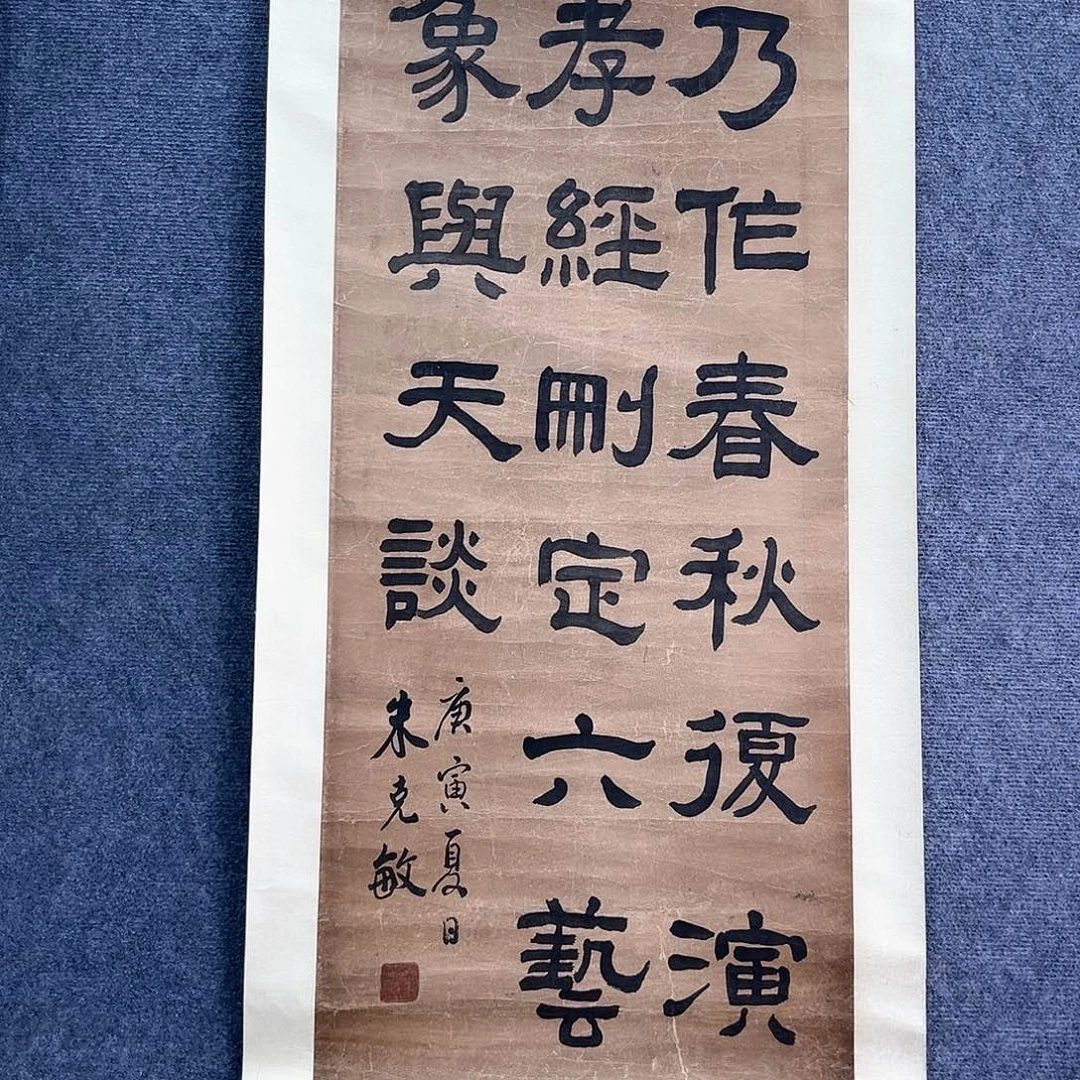 乃作春秋復演
孝經刪定六藝
象與天談
庚寅夏日
朱克敏